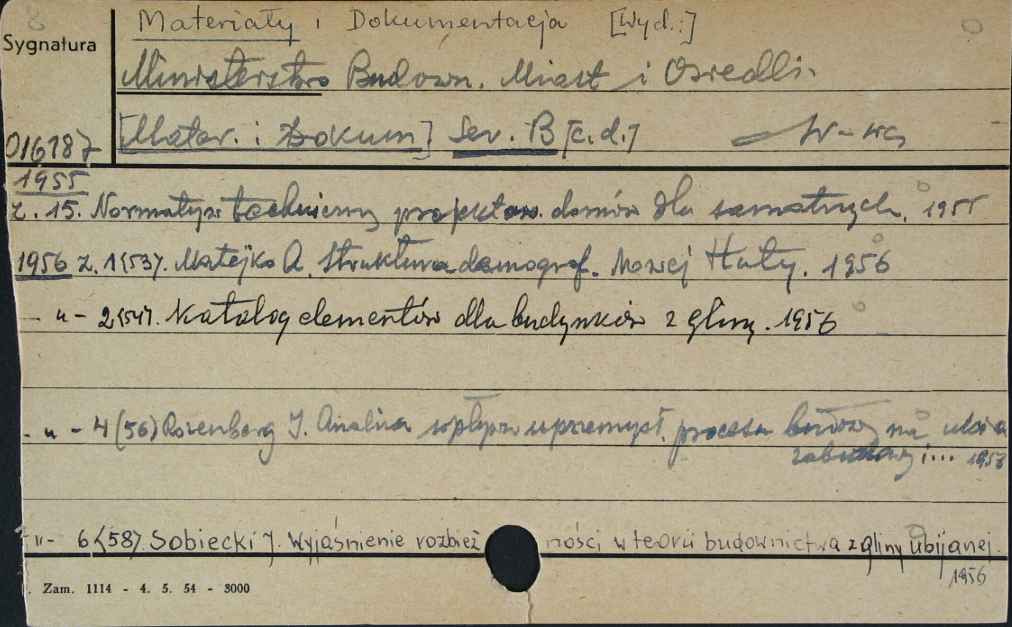 Materiały i Dokumentacja [Wyd.:]
Sygnatura
Ministerstwo Budown. Miast i Osiedli.
[Mater. i Dokum] Ser. B [c.d.] W-wa
016187
1955
z. 15. Normatyw techniczny projektow. domów dla samotnych. 1955
1956 z. 1(53). Matejko A. Struktura demograf. Nowej Huty. 1956
- " - 2(54). Katalog elementów dla budynków z gliny. 1956
- " - 4 (56) Rosenberg J. Analiza wpływu uprzemysł. procesu budowy na
zabudowy i... 1956
- " - 6(58). Sobiecki J. Wyjaśnienie rozbieżności w teorii budownictwa z gliny ubijanej.
1956
Zam. 1114 - 4. 5. 54 - 3000